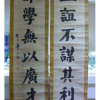 誼不謀其利
學無以廣才